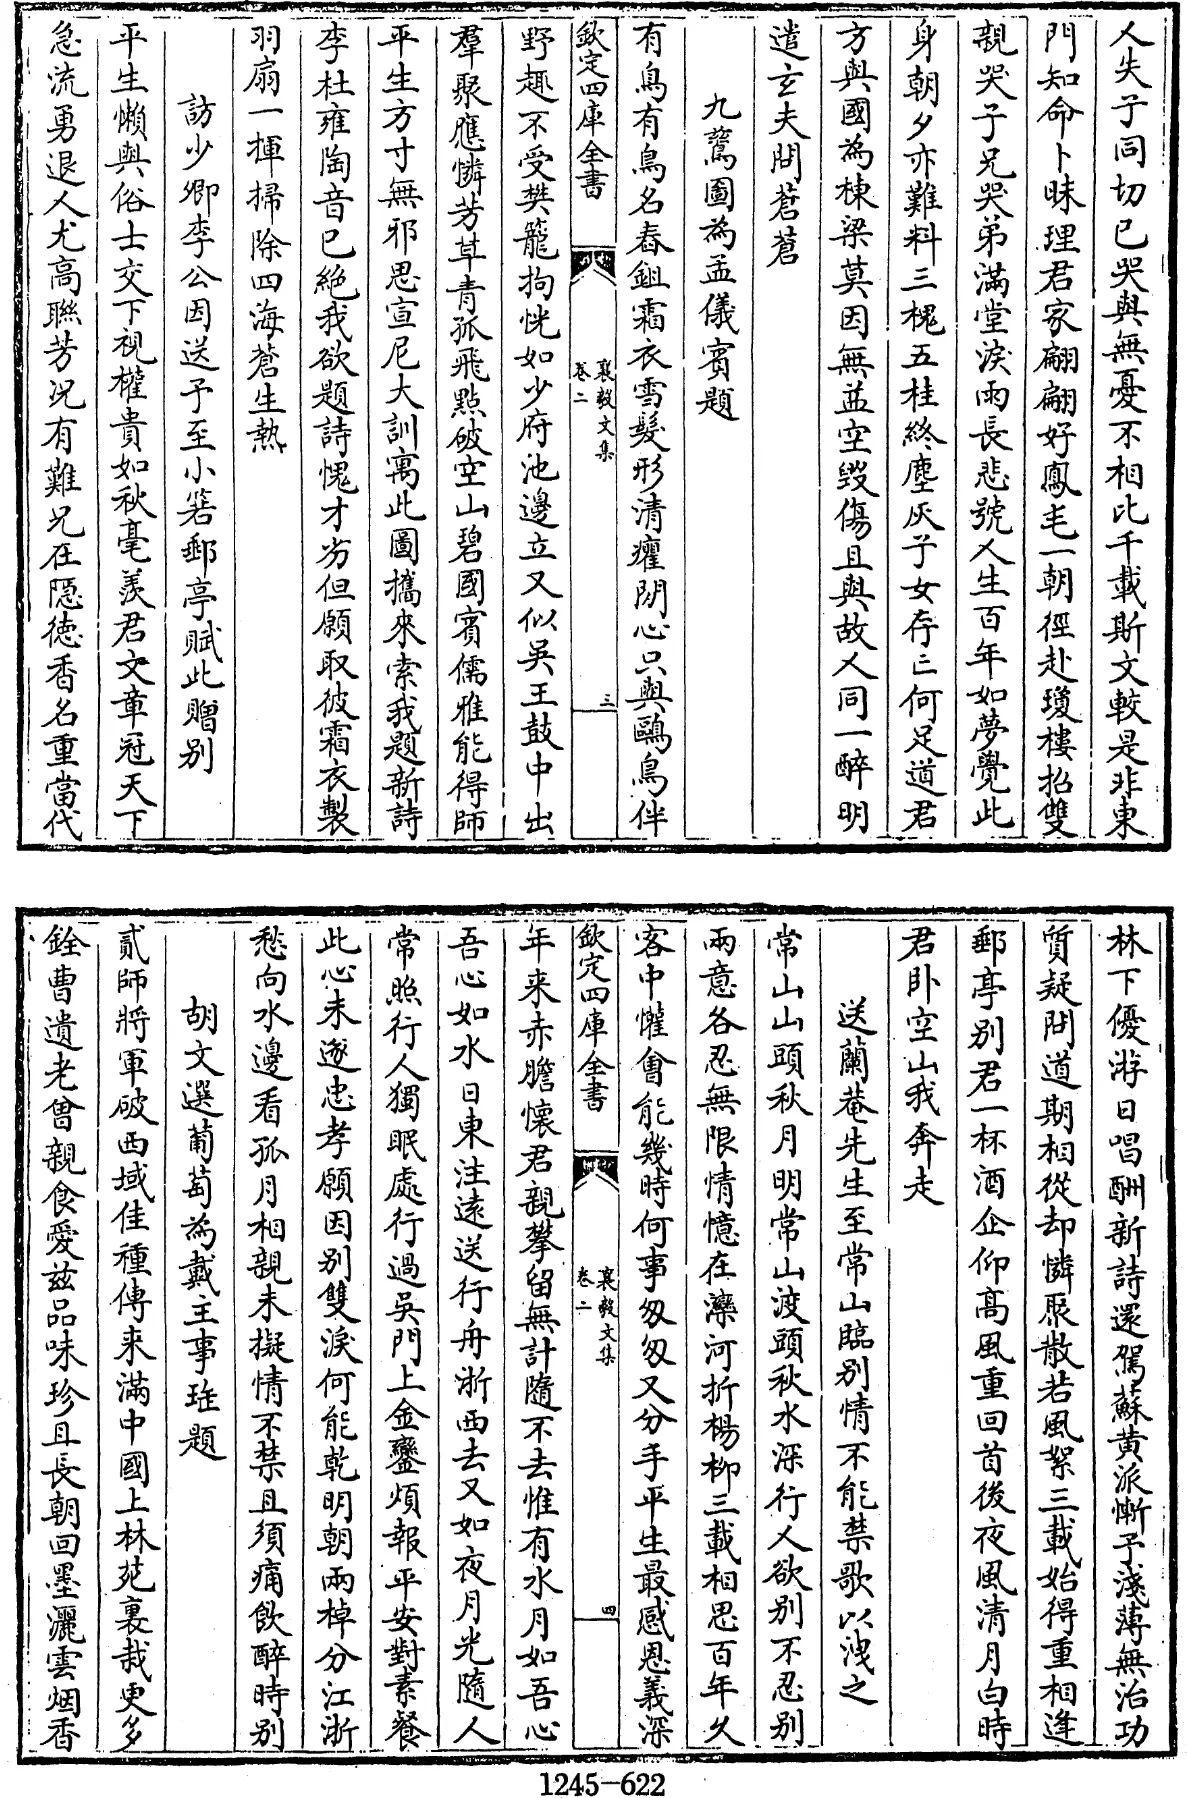 人失子同切已哭與無憂不相比千載斯文較是非東
門知命卜昧理君家翩翩好鳳毛一朝徑赴瓊樓招雙
親哭子兄哭弟滿堂淚雨長悲號人生百年如夢覺此
身朝夕亦難料三槐五桂終塵灰子女存亡何足道君
方與國為棟梁莫因無益空毀傷且與故人同一醉明
遣玄夫問蒼蒼
九鷺圖為孟儀賓題
有鳥有鳥名舂鉏霜衣雪髮形清癯閒心只與鷗鳥伴
欽定四庫全書
襄毅文集
卷二
三
野趣不受樊籠拘恍如少府池邊立又似吳王鼓中出
羣聚應憐芳草青孤飛點破空山碧國賓儒雅能得師
平生方寸無邪思宣尼大訓寓此圖攜來索我題新詩
李杜雍陶音已絕我欲題詩愧才劣但願取彼霜衣製
羽扇一揮掃除四海蒼生熱
訪少卿李公因送予至小箬郵亭賦此贈别
平生懶與俗士交下視權貴如秋毫羨君文章冠天下
急流勇退人尤高聯芳況有難兄在隠德香名重當代
林下優游日唱酬新詩還駕蘇黄派慚予淺薄無治功
質疑問道期相從却憐聚散若風絮三載始得重相逢
郵亭别君一杯酒企仰高風重回首後夜風清月白時
君卧空山我奔走
送蘭菴先生至常山臨别情不能禁歌以洩之
常山山頭秋月明常山渡頭秋水深行人欲别不忍别
兩意各忍無限情憶在灤河折楊柳三載相思百年久
客中懽會能幾時何事匆匆又分手平生最感恩義深
欽定四庫全書
襄毅文集
卷二
四
年来赤膽懷君親攀留無計隨不去惟有水月如吾心
吾心如水日東注遠送行舟浙西去又如夜月光隨人
常照行人獨眠處行過吳門上金鑾煩報平安對素餐
此心未遂忠孝願因别雙淚何能乾明朝兩棹分江浙
愁向水邊看孤月相親未擬情不禁且須痛飲醉時别
胡文選葡萄為戴主事珤題
貳師將軍破西域佳種傳来滿中國上林苑裏栽更多
銓曹遺老曾親食愛兹品味珍且長朝回墨灑雲烟香
1245-622